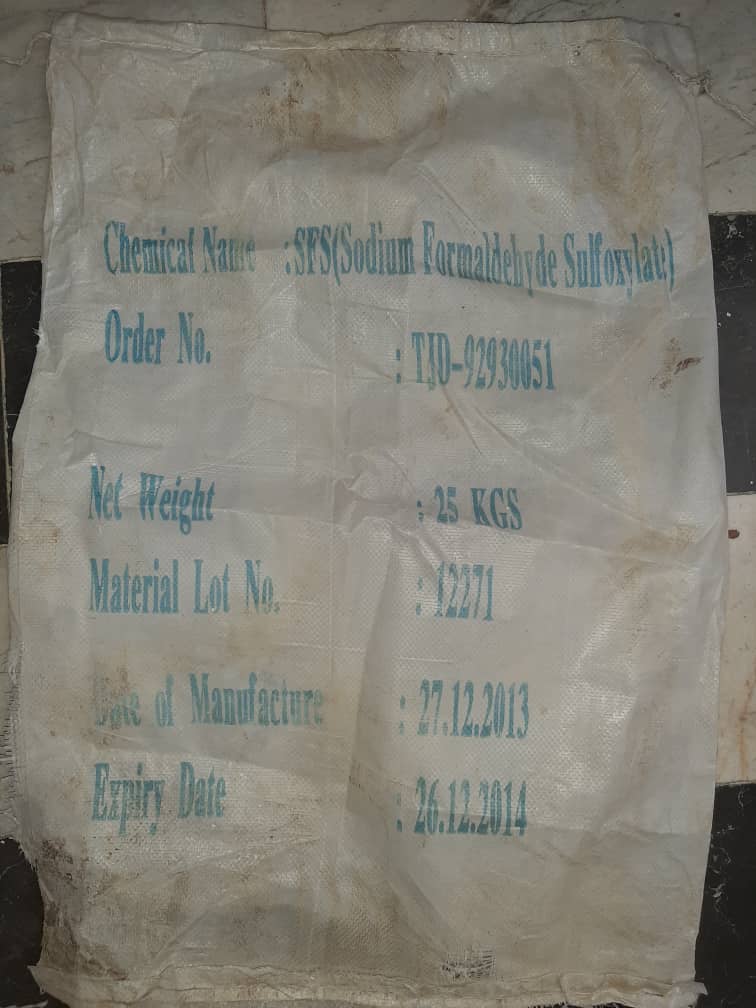 Chemical Name : SFS(Sodium Formaldehyde Sulfoxylate)
Order No. : TJD-92930051
Net Weight : 25 KGS
Material Lot No. : 12271
Date of Manufacture : 27.12.2013
Expiry Date : 26.12.2014